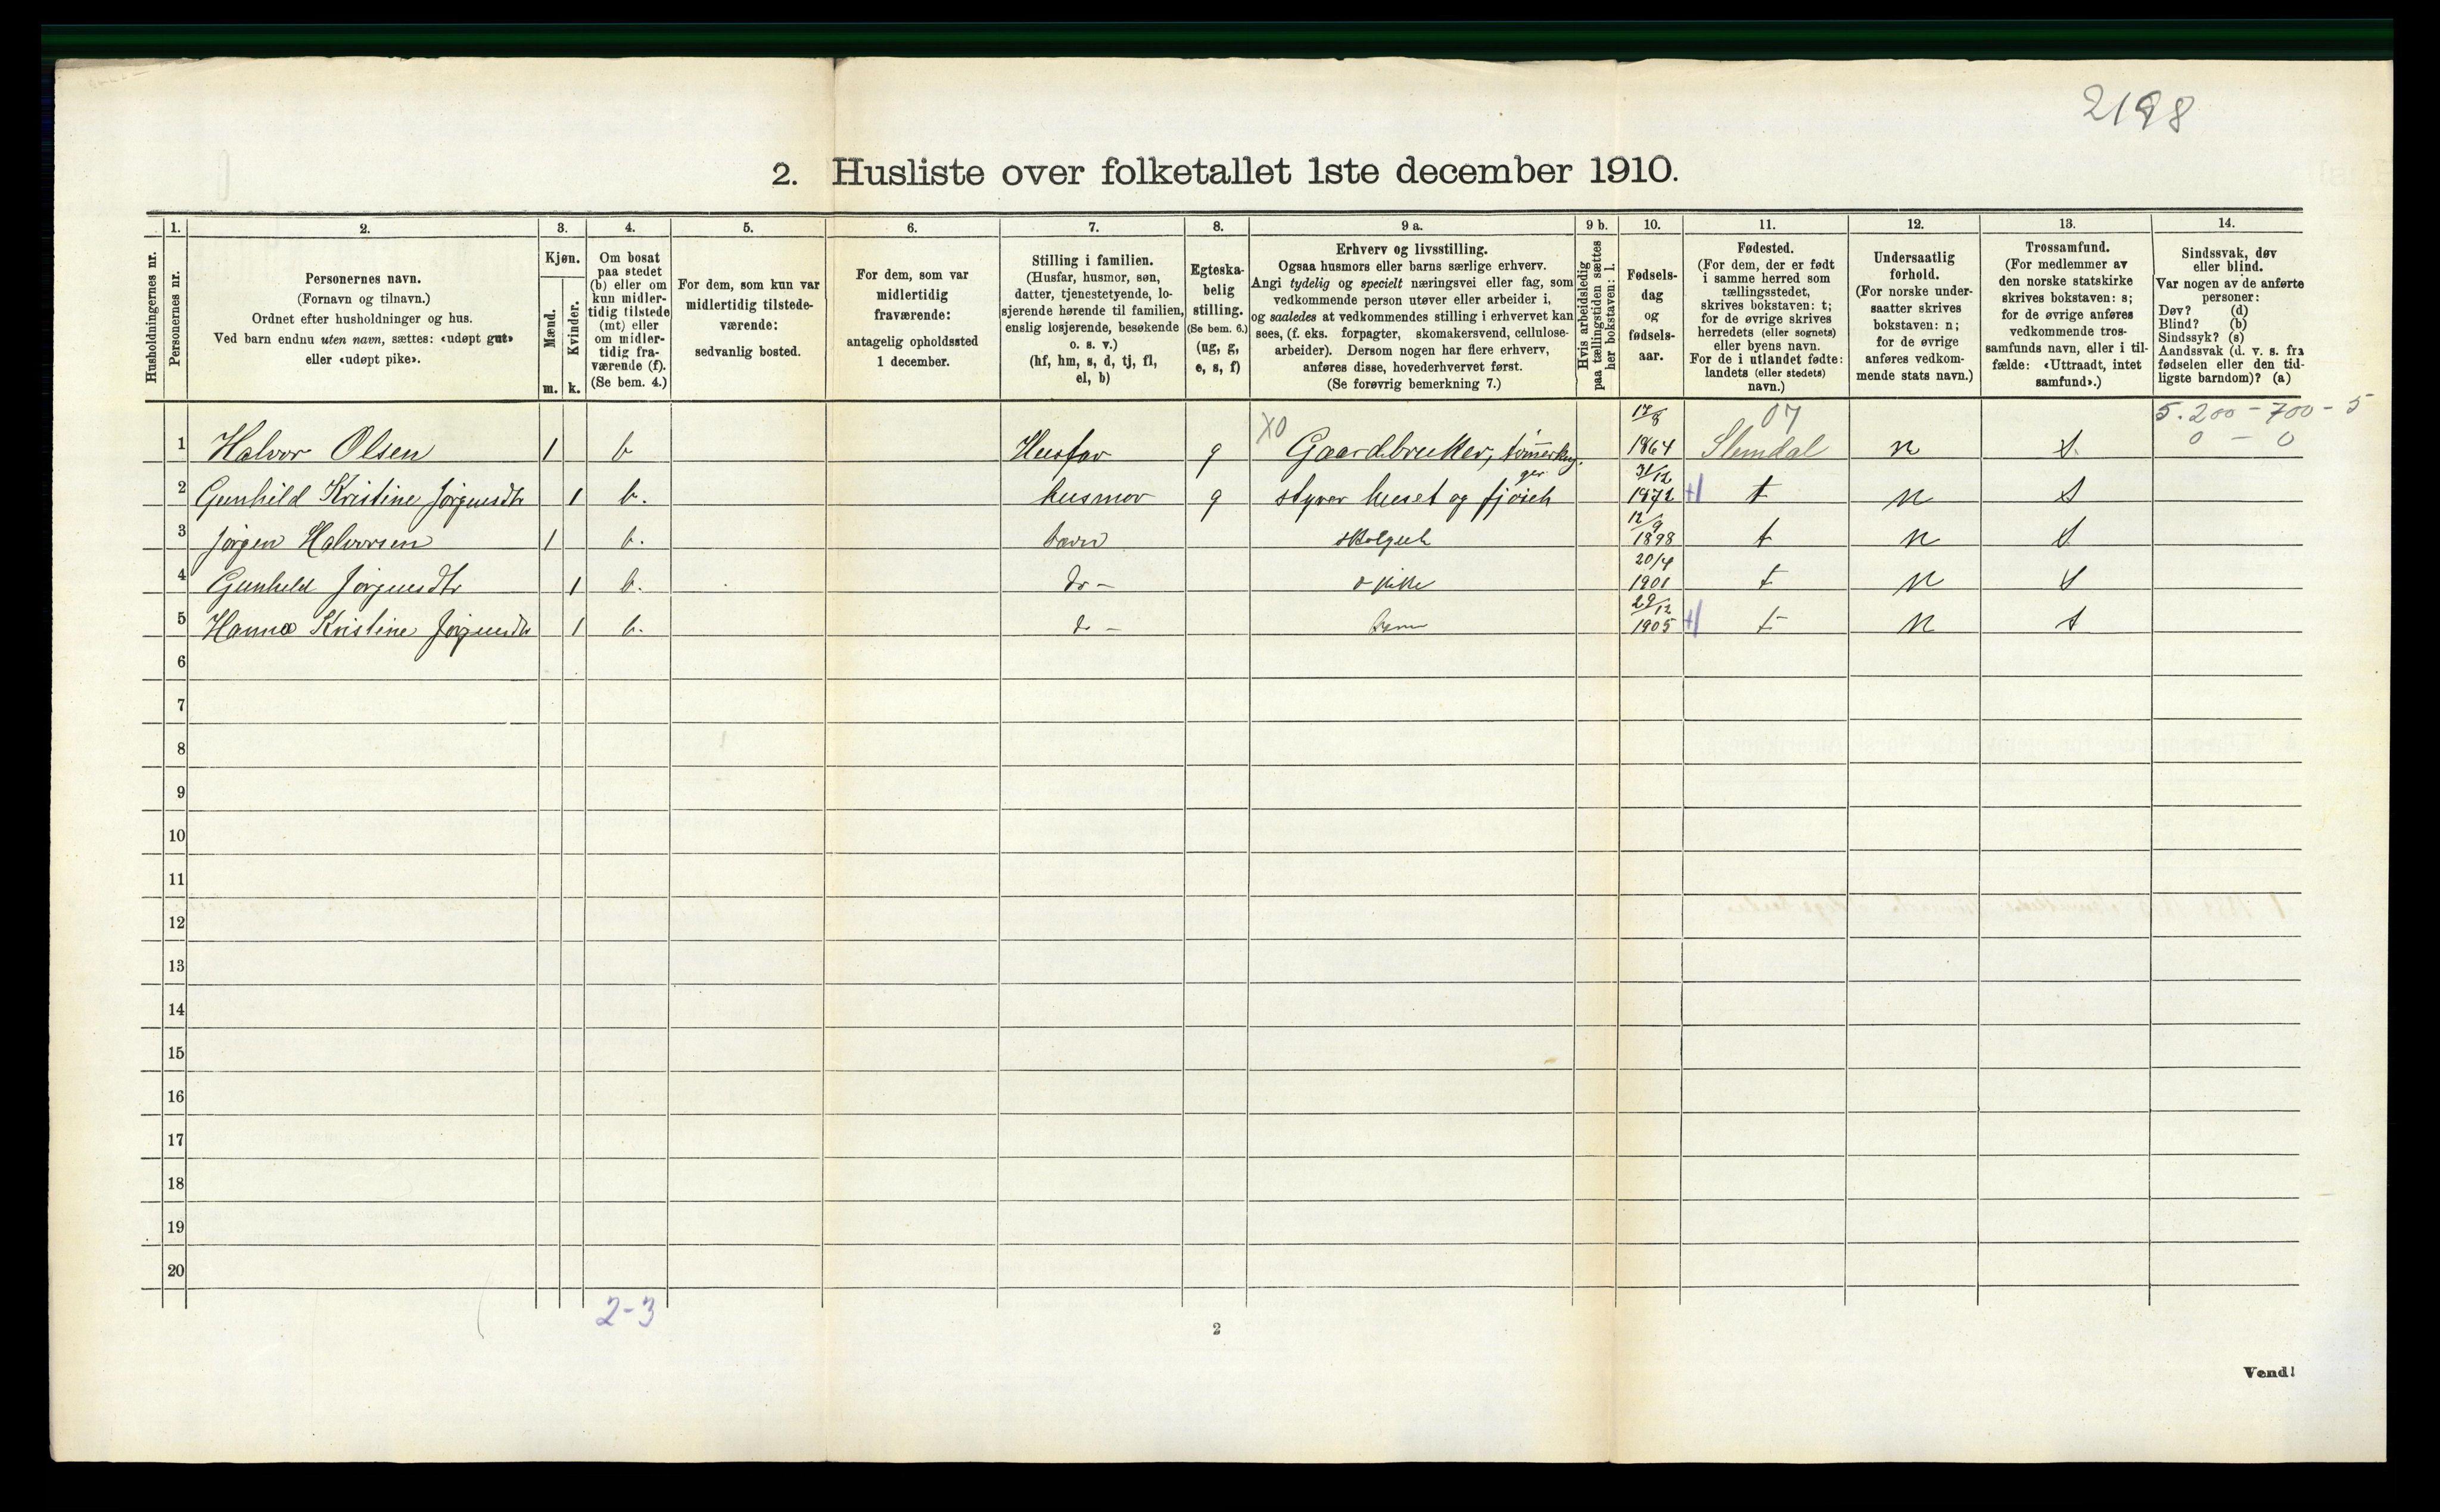 2198
2. Husliste over folketallet 1ste december 1910.
Husholdningernes nr.
1.
Personernes nr.
2.
Personernes navn.
(Fornavn og tilnavn.)
Ordnet efter husholdninger og hus.
Ved barn endnu uten navn, sættes: «udøpt gut»
eller «udøpt pike».
3.
Kjøn.
Mænd.
m.
Kvinder.
k.
4.
Om bosat
paa stedet
(b) eller om
kun midler-
tidig tilstede
(mt) eller
om midler-
tidig fra-
værende (f).
(Se bem. 4.)
5.
For dem, som kun var
midlertidig tilstede-
værende:
sedvanlig bosted.
6.
For dem, som var
midlertidig
fraværende:
antagelig opholdssted
1 december.
7.
Stilling i familien.
(Husfar, husmor, søn,
datter, tjenestetyende, lo-
sjerende hørende til familien,
enslig losjerende, besøkende
o. s. v.)
(hf, hm, s, d, tj, fl,
el, b)
8.
Egteska-
belig
stilling.
(Se bem. 6.)
(ug, g,
e, s, f)
9 a.
Erhverv og livsstilling.
Ogsaa husmors eller barns særlige erhverv.
Angi tydelig og specielt næringsvei eller fag, som
vedkommende person utøver eller arbeider i,
og saaledes at vedkommendes stilling i erhvervet kan
sees, (f. eks. forpagter, skomakersvend, cellulose-
arbeider). Dersom nogen har flere erhverv,
anføres disse, hovederhvervet først.
(Se forøvrig bemerkning 7.)
9 b.
Hvis arbeidsledig
paa tællingstiden sættes
her bokstaven: l.
10.
Fødsels-
dag
og
fødsels-
aar.
11.
Fødested.
(For dem, der er født
i samme herred som
tællingsstedet,
skrives bokstaven: t;
for de øvrige skrives
herredets (eller sognets)
eller byens navn.
For de i utlandet fødte:
landets (eller stedets)
navn.)
12.
Undersaatlig
forhold.
(For norske under-
saatter skrives
bokstaven: n;
for de øvrige
anføres vedkom-
mende stats navn.)
13.
Trossamfund.
(For medlemmer av
den norske statskirke
skrives bokstaven: s;
for de øvrige anføres
vedkommende tros-
samfunds navn, eller i til-
fælde: «Uttraadt, intet
samfund».)
14.
Sindssvak, døv
eller blind.
Var nogen av de anførte
personer:
Døv? (d)
Blind? (b)
Sindssyk? (s)
Aandssvak (d. v. s. fra
fødselen eller den tid-
ligste barndom)? (a)
17/8 07 5.200 - 700 - 5
1 Halvor Olsen 1 b Husfar g X0 Gaardbruker, tømmerhug- 1864 Slemdal n s. 0 - 0
ger 31/12
2 Gunhild Kristine Jørgensdtr 1 b. husmor g styrer huset og fjøset 1872 t n s
12/9
3 Jørgen Halvorsen 1 b. barn skolegut 1898 t n s
20/4
4 Gunhild Jørgensdtr 1 b. do - o pike 1901 t n s
29/12
5 Hanna Kristine Jørgensdtr 1 b. do - barn 1905 t n s
6
7
8
9
10
11
12
13
14
15
16
17
18
19
20
2-3
2
Vend!